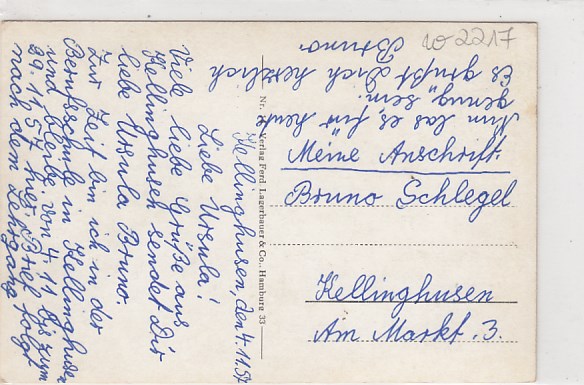 Kellinghusen, den 4.11.57
Liebe Ursula!
Viele liebe Grüße aus
Kellinghusen sendet Dir
liebe Ursula Bruno.
Zur Zeit bin ich in der
Berufsschule in Kellinghusen
und bleibe von 4.11 bis zum
29.11.57 hier. Brief folgt
nach dem Lehrgang
Nun las es für heute
genug sein.
Es grüßt Dich herzlich
Bruno
Verlag Ferd. Lagerbauer & Co., Hamburg 33
Meine Anschrift:
Bruno Schlegel
Kellinghusen
Am Markt. 3.
w 2217